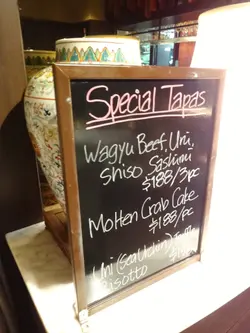 Special Tapas
Wagyu Beef, Uni,
Shiso Sashimi
$188/3pc
Molten Crab Cake
$188/pc
Uni (Sea Urchin)
Risotto